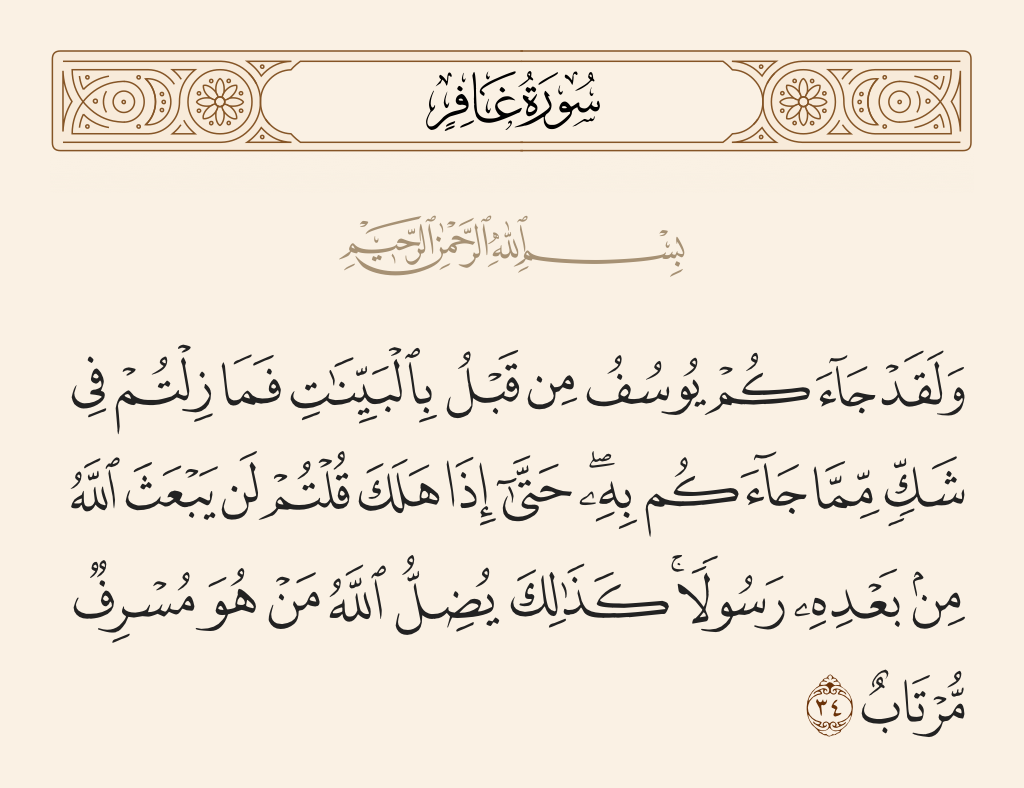 سُورَةُ غَافِرٍ
بِسْمِ ٱللَّهِ ٱلرَّحْمَٰنِ ٱلرَّحِيمِ
وَلَقَدْ جَآءَكُمْ يُوسُفُ مِن قَبْلُ بِٱلْبَيِّنَٰتِ فَمَا زِلْتُمْ فِى
شَكٍّ مِّمَّا جَآءَكُم بِهِۦ ۖ حَتَّىٰٓ إِذَا هَلَكَ قُلْتُمْ لَن يَبْعَثَ ٱللَّهُ
مِنۢ بَعْدِهِۦ رَسُولًا ۚ كَذَٰلِكَ يُضِلُّ ٱللَّهُ مَنْ هُوَ مُسْرِفٌ
مُّرْتَابٌ ٣٤